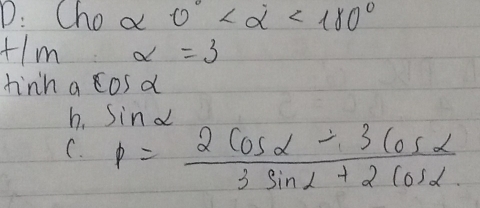 D: Cho α 0° < α < 180°
t/m α = 3
tính a cos α
b, Sin α
C. P = 2 Cos α - 3 Cos α
3 Sin α + 2 Cos α.